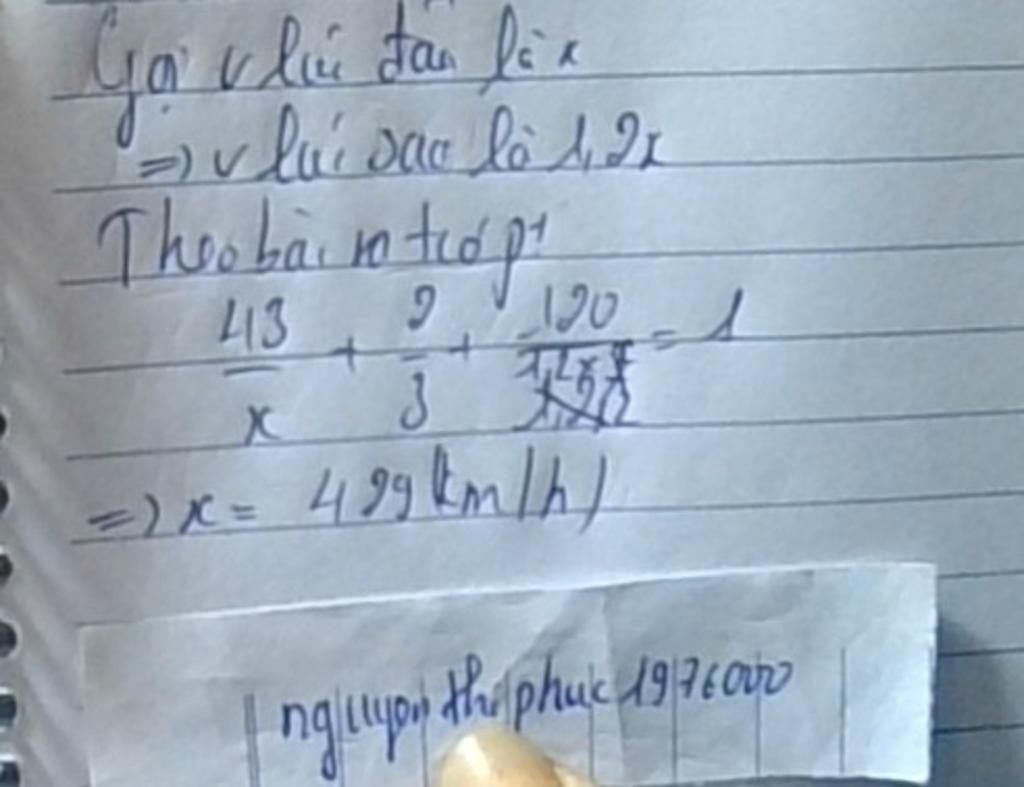 Gọi v lúc đầu là x
=> v lúc sau là 1,2x
Theo bài ra có pt
43/x + 2/3 + 120/1,2x = 1
=> x = 429 (km/h)
nguyen thi phuc 1976000